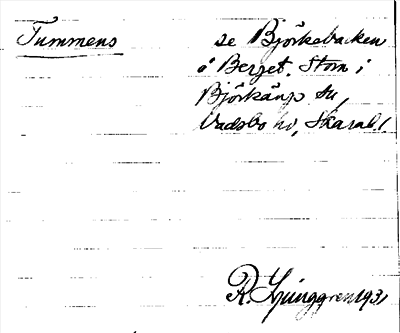 Tummens
se Björkebacken
å Berget. Stom i
Björkäng sn,
Vadsbo hd, Skarab. l
R. Ljunggren 1931